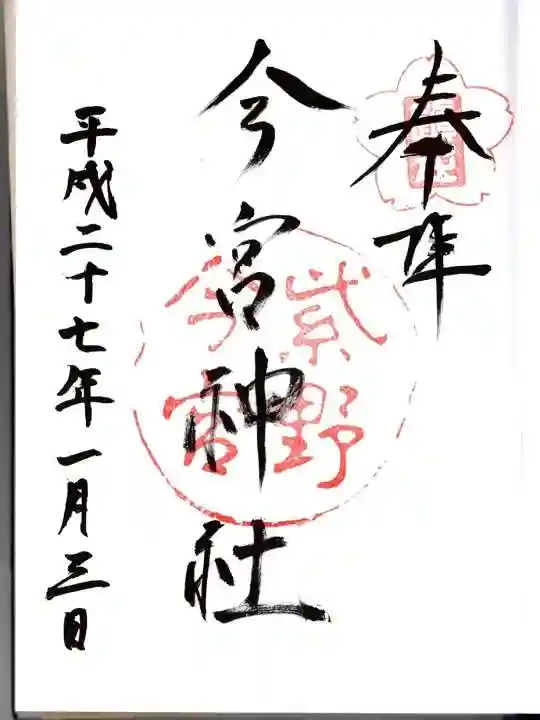 奉拝
今宮神社
紫野
今宮
平成二十七年一月三日